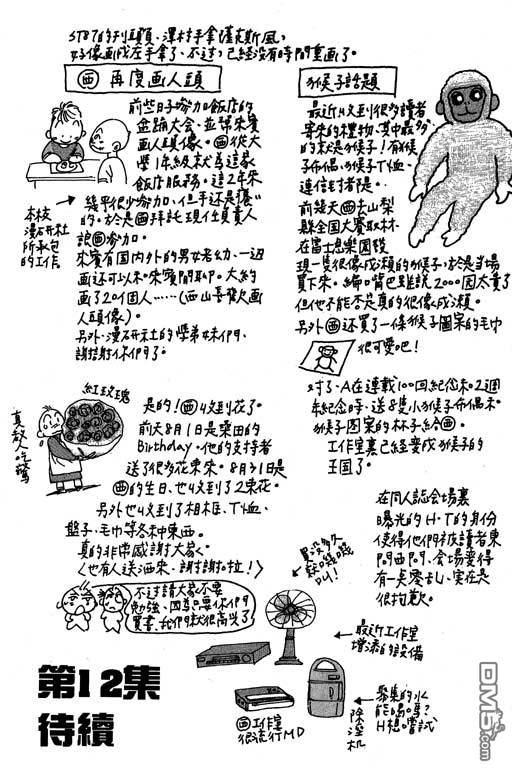 ST87的刊頭頁、澤村手拿達克斯風,
好像画成左手拿了、不过,已經没有時間重画了。
西 再度画人頭
前些日子參加飯店的
盆踊大会、並幫來賓
画人頭像。西從大
學1年級就為這家
飯店服務。這2年來
幾乎很少參加,但手还是癢
的。於是西拜託現任負責人
讓西參加。
來賓有国内外的男女老幼、一边
画还可以和來賓閒聊。大約
画了20個人……(西山喜歡画
人頭像)。
另外、漫研社的學弟妹們、
謝謝你們了。
本校
漫研社
所承包
的工作。
猴子話題
最近收到很多讀者
寄來的禮物、其中最多
的就是猴子!有猴
子布偶、猴子T恤、
連信封都是。
前幾天西去山梨
縣全国大賽取材、
在富士急樂園發
現一隻很像成瀬的猴子,於是当場
買下來。編口背巴雖説2000円太貴了
但他不能否定真的很像成瀬。
另外西还買了一條猴子圖案的毛巾
很可愛吧!
对了、A在連載100回紀念和2週
年紀念時、送8隻小猴子布偶和
猴子图案的杯子給西。
工作室裏已經变成猴子的
王国了。
紅玫瑰
真教人吃驚
是的!西收到花了。
前天8月1日是桑田的
Birthday。他的支持者
送了很多花束來。8月4日是
西的生日、也收到了2束花。
另外也收到了相框、T恤、
盤子、毛巾等各种東西。
真的非常感謝大家
(也有人送酒來、謝謝啦!)
不过請大家不要
勉強、因為只要你們
買書、我們就很高兴了
在同人誌会場裏
曝光的H・T的身份
使得他們被讀者東
問西問、会場变得
有一点零乱、實在是
很抱歉。
最近工作室
增添的設備
西工作室
很流行MD
除溼机
聚集的水
能喝嗎?
H想嘗試
第12集
待續
DM5.com